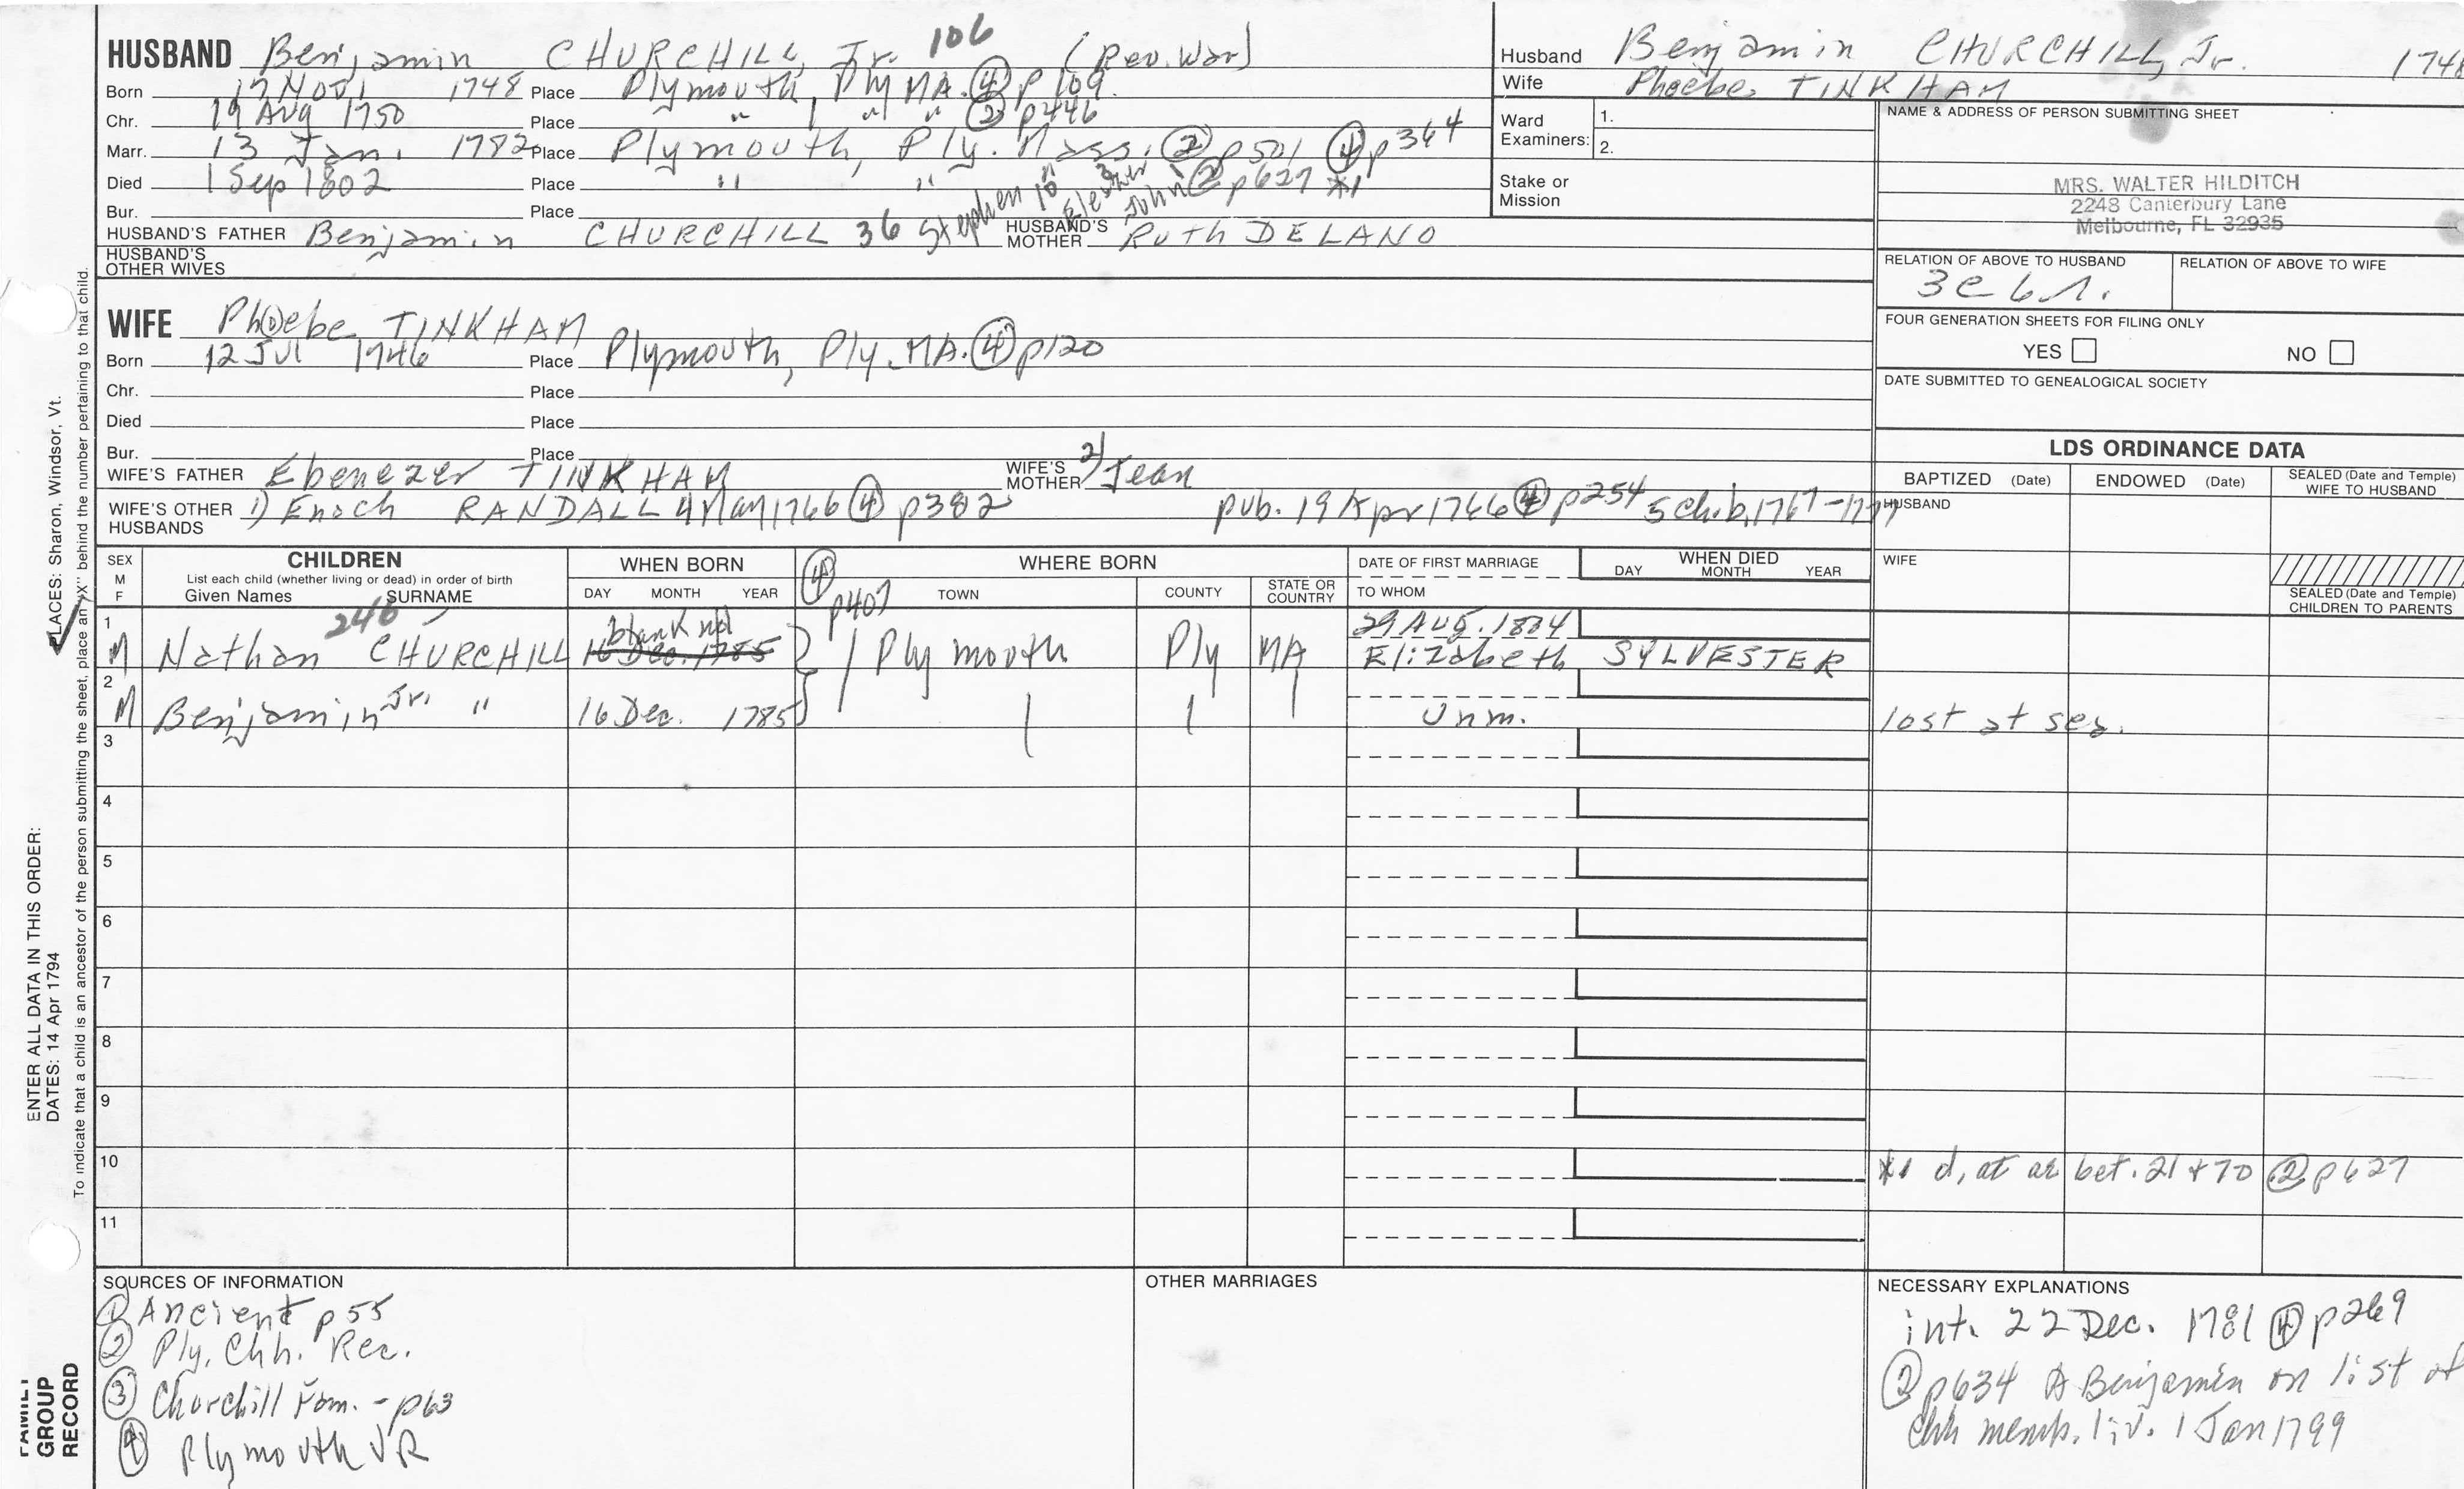 HUSBAND Benjamin CHURCHILL, Jr. 106 (Rev. War)
Born 17 Nov. 1748 Place Plymouth, Ply MA. ④ p 109.
Chr. 19 Aug 1750 Place " " " ② p446
Marr. 13 Jan. 1782 Place Plymouth, Ply. Mass. ② p501 ④ p364
Died 1 Sep 1802 Place " " ② p627 *1
Bur. Place
HUSBAND'S FATHER Benjamin CHURCHILL 36 Stephen 10 Eleazer 3 John 1 HUSBAND'S MOTHER Ruth DELANO
HUSBAND'S OTHER WIVES
Husband Benjamin CHURCHILL, Jr. 1748
Wife Phoebe TINKHAM
Ward Examiners: 1.
2.
Stake or Mission
NAME & ADDRESS OF PERSON SUBMITTING SHEET
MRS. WALTER HILDITCH
2248 Canterbury Lane
Melbourne, FL 32935
RELATION OF ABOVE TO HUSBAND RELATION OF ABOVE TO WIFE
3c 6r.
FOUR GENERATION SHEETS FOR FILING ONLY
YES NO
DATE SUBMITTED TO GENEALOGICAL SOCIETY
WIFE Ph(o)ebe TINKHAM
Born 12 Jul 1746 Place Plymouth, Ply. MA. ④ p120
Chr. Place
Died Place
Bur. Place
WIFE'S FATHER Ebenezer TINKHAM WIFE'S MOTHER 2) Jean
WIFE'S OTHER HUSBANDS 1) Enoch RANDALL 4 May 1766 ④ p382 pub. 19 Apr 1766 ④ p254 5 ch. b. 1767-1777
LDS ORDINANCE DATA
BAPTIZED (Date) ENDOWED (Date) SEALED (Date and Temple) WIFE TO HUSBAND
HUSBAND
WIFE
SEALED (Date and Temple) CHILDREN TO PARENTS
SEX M F
CHILDREN
List each child (whether living or dead) in order of birth
Given Names SURNAME
WHEN BORN
DAY MONTH YEAR
④ p407
WHERE BORN
TOWN COUNTY STATE OR COUNTRY
DATE OF FIRST MARRIAGE
TO WHOM
WHEN DIED
DAY MONTH YEAR
1 M Nathan 246 CHURCHILL blank nd 16 Dec. 1785 Plymouth Ply MA 29 Aug. 1804
Elizabeth SYLVESTER
2 M Benjamin Jr. " 16 Dec. 1785 Unm. lost at sea.
3
4
5
6
7
8
9
10 *1 d, at ae bet. 21 + 70 ② p627
11
SOURCES OF INFORMATION
① Ancient p55
② Ply. Chh. Rec.
③ Churchill Fam. - p63
④ Plymouth VR
OTHER MARRIAGES
NECESSARY EXPLANATIONS
int. 22 Dec. 1781 ④ p269
② p634 A Benjamin on list of
Chh memb. liv. 1 Jan 1799
PLACES: Sharon, Windsor, Vt.
ENTER ALL DATA IN THIS ORDER:
DATES: 14 Apr 1794
To indicate that a child is an ancestor of the person submitting the sheet, place an "X" behind the number pertaining to that child.
FAMILY
GROUP
RECORD